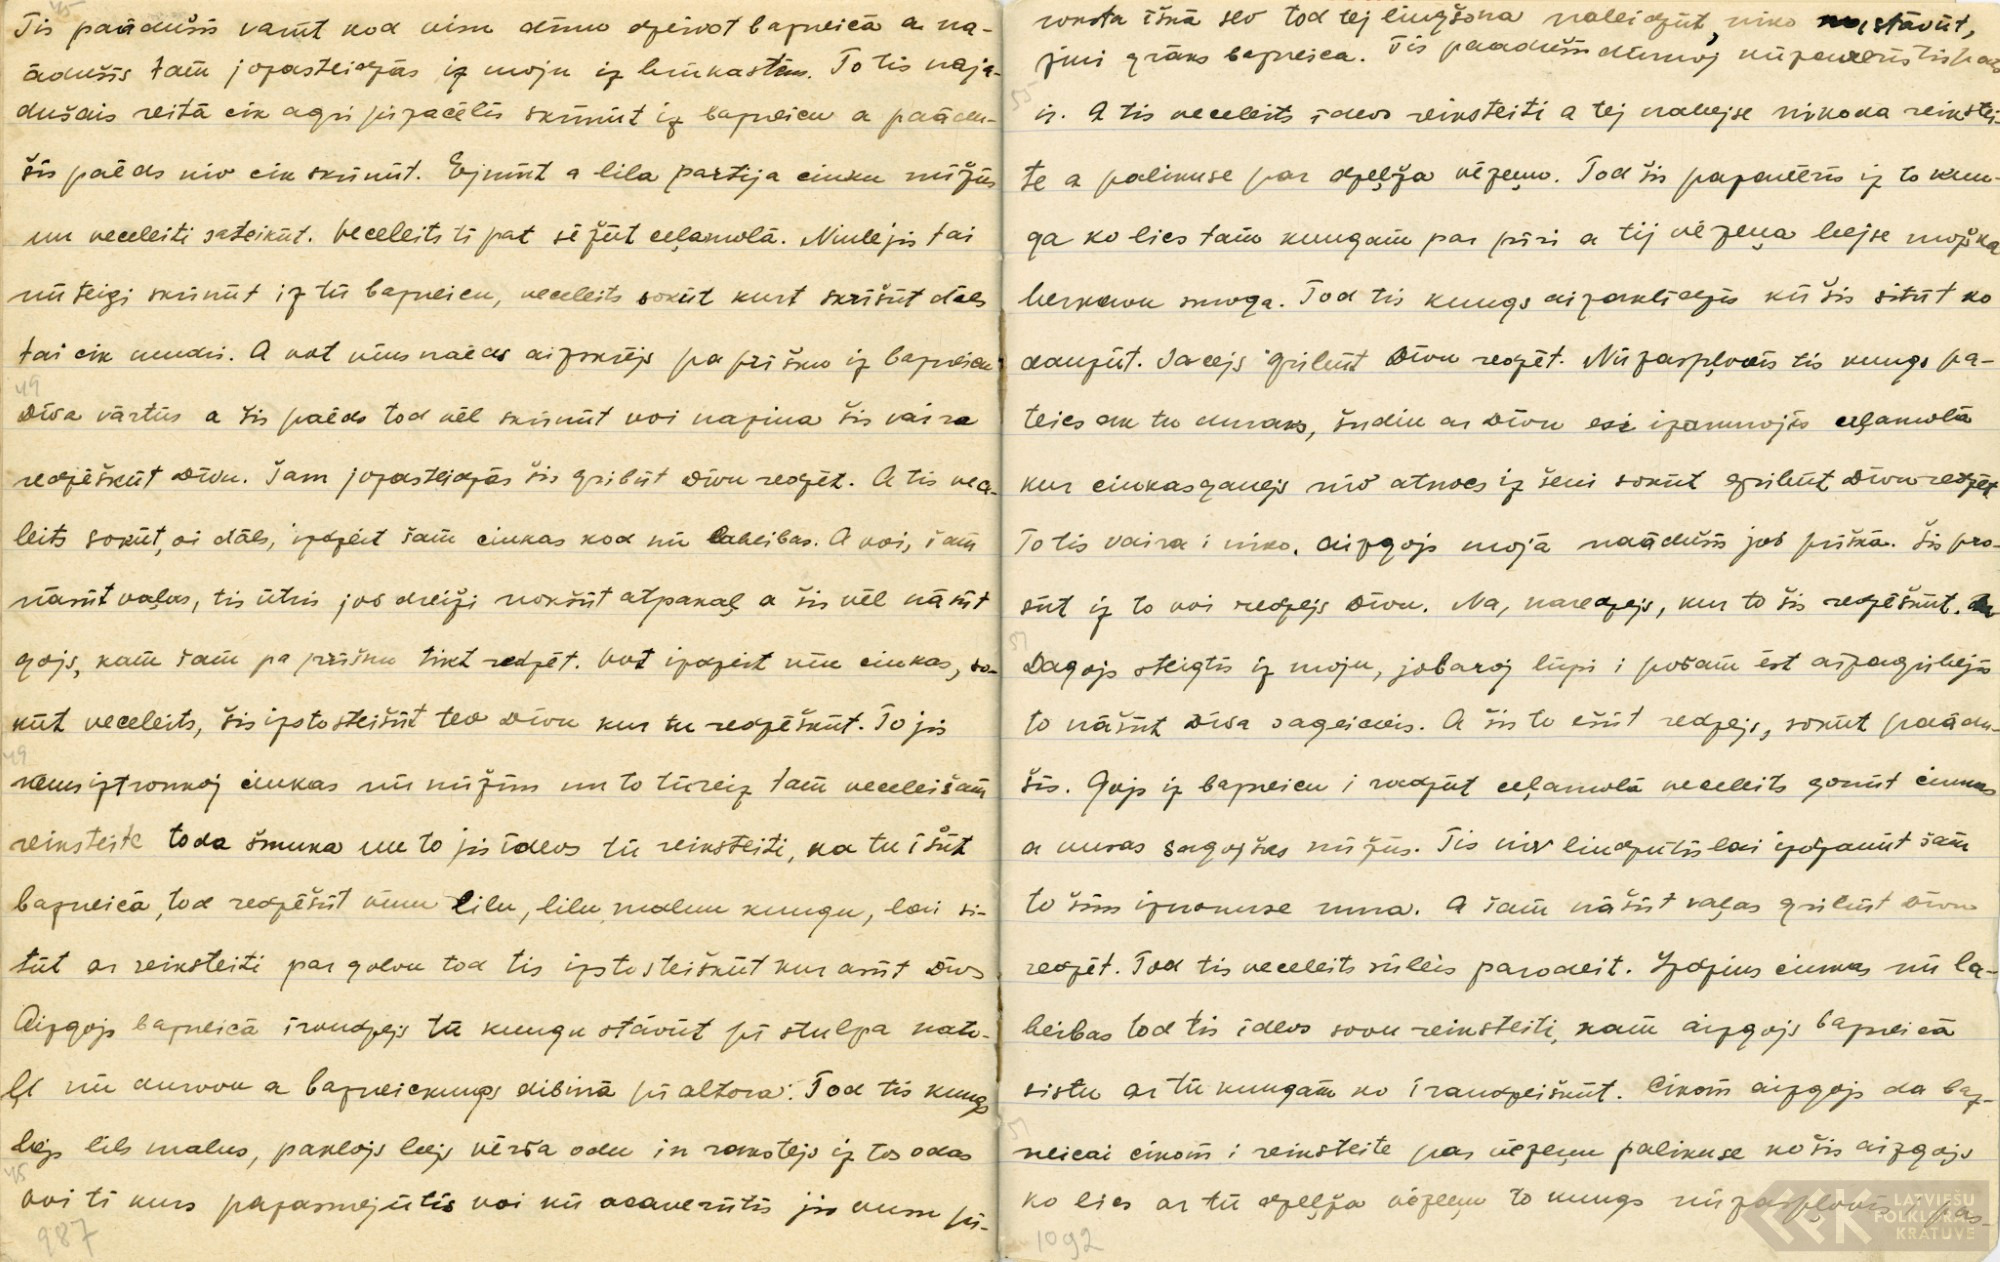 Tis paādušis varūt kod visu dīnu dzeivot bazneicā a na-
ādušis tam jopasteidzās iz moju iz brūkastim. To tis naja-
dušais reitā cik agri pīzacēlis skrīnūt iz bazneicu a paādu-
šis paēds niv cik skrīnūt. Ejmūt a lila partija ciuku nūžūs
un veceleiti sateikūt. Veceleits tī pat sēžūt ceļamolā. Nulejis tai
nūsteigi skrīnūt iz tū bazneicu, veceleits sokūt kurt skrīšūt dāls
tai cik mudri. A vot vīns naēds aizskrējs pa prīšku iz bazneicu
Dīva vārtūs a šis paēds tod vēl skrīnūt voi nazina šis vaira
redzēškūt Dīvu. Šam jopasteidzās šis gribūt Dīvu redzēt. A tis vece-
leits sokūt, oi dāls, izdzeit šam ciukas kod nū labeibas. A voi, šam
nāsūt vaļas, tis ūtris jos dreiži nokšūt atpakaļ a šis vēl nāsūt
gojs, kam šam pa prīšku tikt redzēt. Vot izdzeit vīn ciukas, so-
kūt veceleits, šis izstosteišūt tev Dīvu kur tu redzēškūt. To jis
nems iztronkoj ciukas nū nūžim un to tūreiz tam veceleišam
reiksteite toda šmuka un to jis īdevs tū reiksteiti, ka tu īšūt
bazneicā, tod redzēšūt vīnu lilu, lilu malnu kungu, lai si-
tūt ar reiksteiti par golvu tod tis izstosteiškūt kur asūt Dīvs
Aizgojs bazneicā īraudzejs tū kungu stāvūt pī stulpa nato-
ļi nū durovu a bazneickungs dibinā pī altora. Tod tis kungs
bejs lils malns, paklojs bejs vērša odu in rakstejs iz tos odas
voi tī kurs pazasmejūtīs voi kū acaverūtīs jis vusu pī-
987
roksta īškā sev tod tej liugšona naleidzūt, niko nastāvūt,
jimi grāks bazneica. Tis paadušš dūmoj nūzaverūtis kas
ir. A tis veceleits īdevs reiksteiti a tej nabejse nikoda reikstei-
te a palikuse par dzeļža vēzeņu. Tod šis pazavēris iz to kun-
ga ko lics tam kungam par pīri a tij vēzeņa bejse moška
berkovu smoga. Tod tis kungs aizaklīdzis kū šis sitūt ko
dauzūt. Sacejs gribūt Dīvu redzēt. Nūzasplovis tis kungs pa-
teics ak tu duraks, šudiu ar Dīvu esi izarunojis ceļamolā
kur ciukasganejs niv atnocs iz šeni sokūt gribūt Dīvu redzēt
To tis vaira i niko. Aizgojs mojā naādušis jos prīškā. Šis pro-
sūt iz to voi redzejs Dīvu. Na, naredzejs, kur to šis redzēškūt.
Dagojs steigtis iz moju, jobaroj lūpi i pošam ēst aizagribejis
to nāšūt Dīva sageideis. A šis to ešūt redzejs, sokūt paādu-
šis. Gojs iz bazneicu i radzūt ceļamolā veceleits gonūt ciukas
a vuras sagojšas nūžūs. Tis niv liudzūtīs lai izdzanūt šam
to šim iznokuse runa. A šam nāšūt vaļas gribūt Dīvu
redzēt. Tod tis veceleits sūleis parodeit. Izdzius ciukas nū la-
beibas tod tis īdevs sovu reiksteiti, kam aizgojs bazneicā
sistu ar tū kungam ko īraudzeiškūt. Cikom aizgojs da baz-
neicai cikom i reiksteite par vēzeņu palikuse košis aizgojs
ko lics ar tū dzeļža vēzeņu to kungs nūzasplovis i pas-
1092
LATVIEŠU
FOLKLORAS
KRĀTUVE